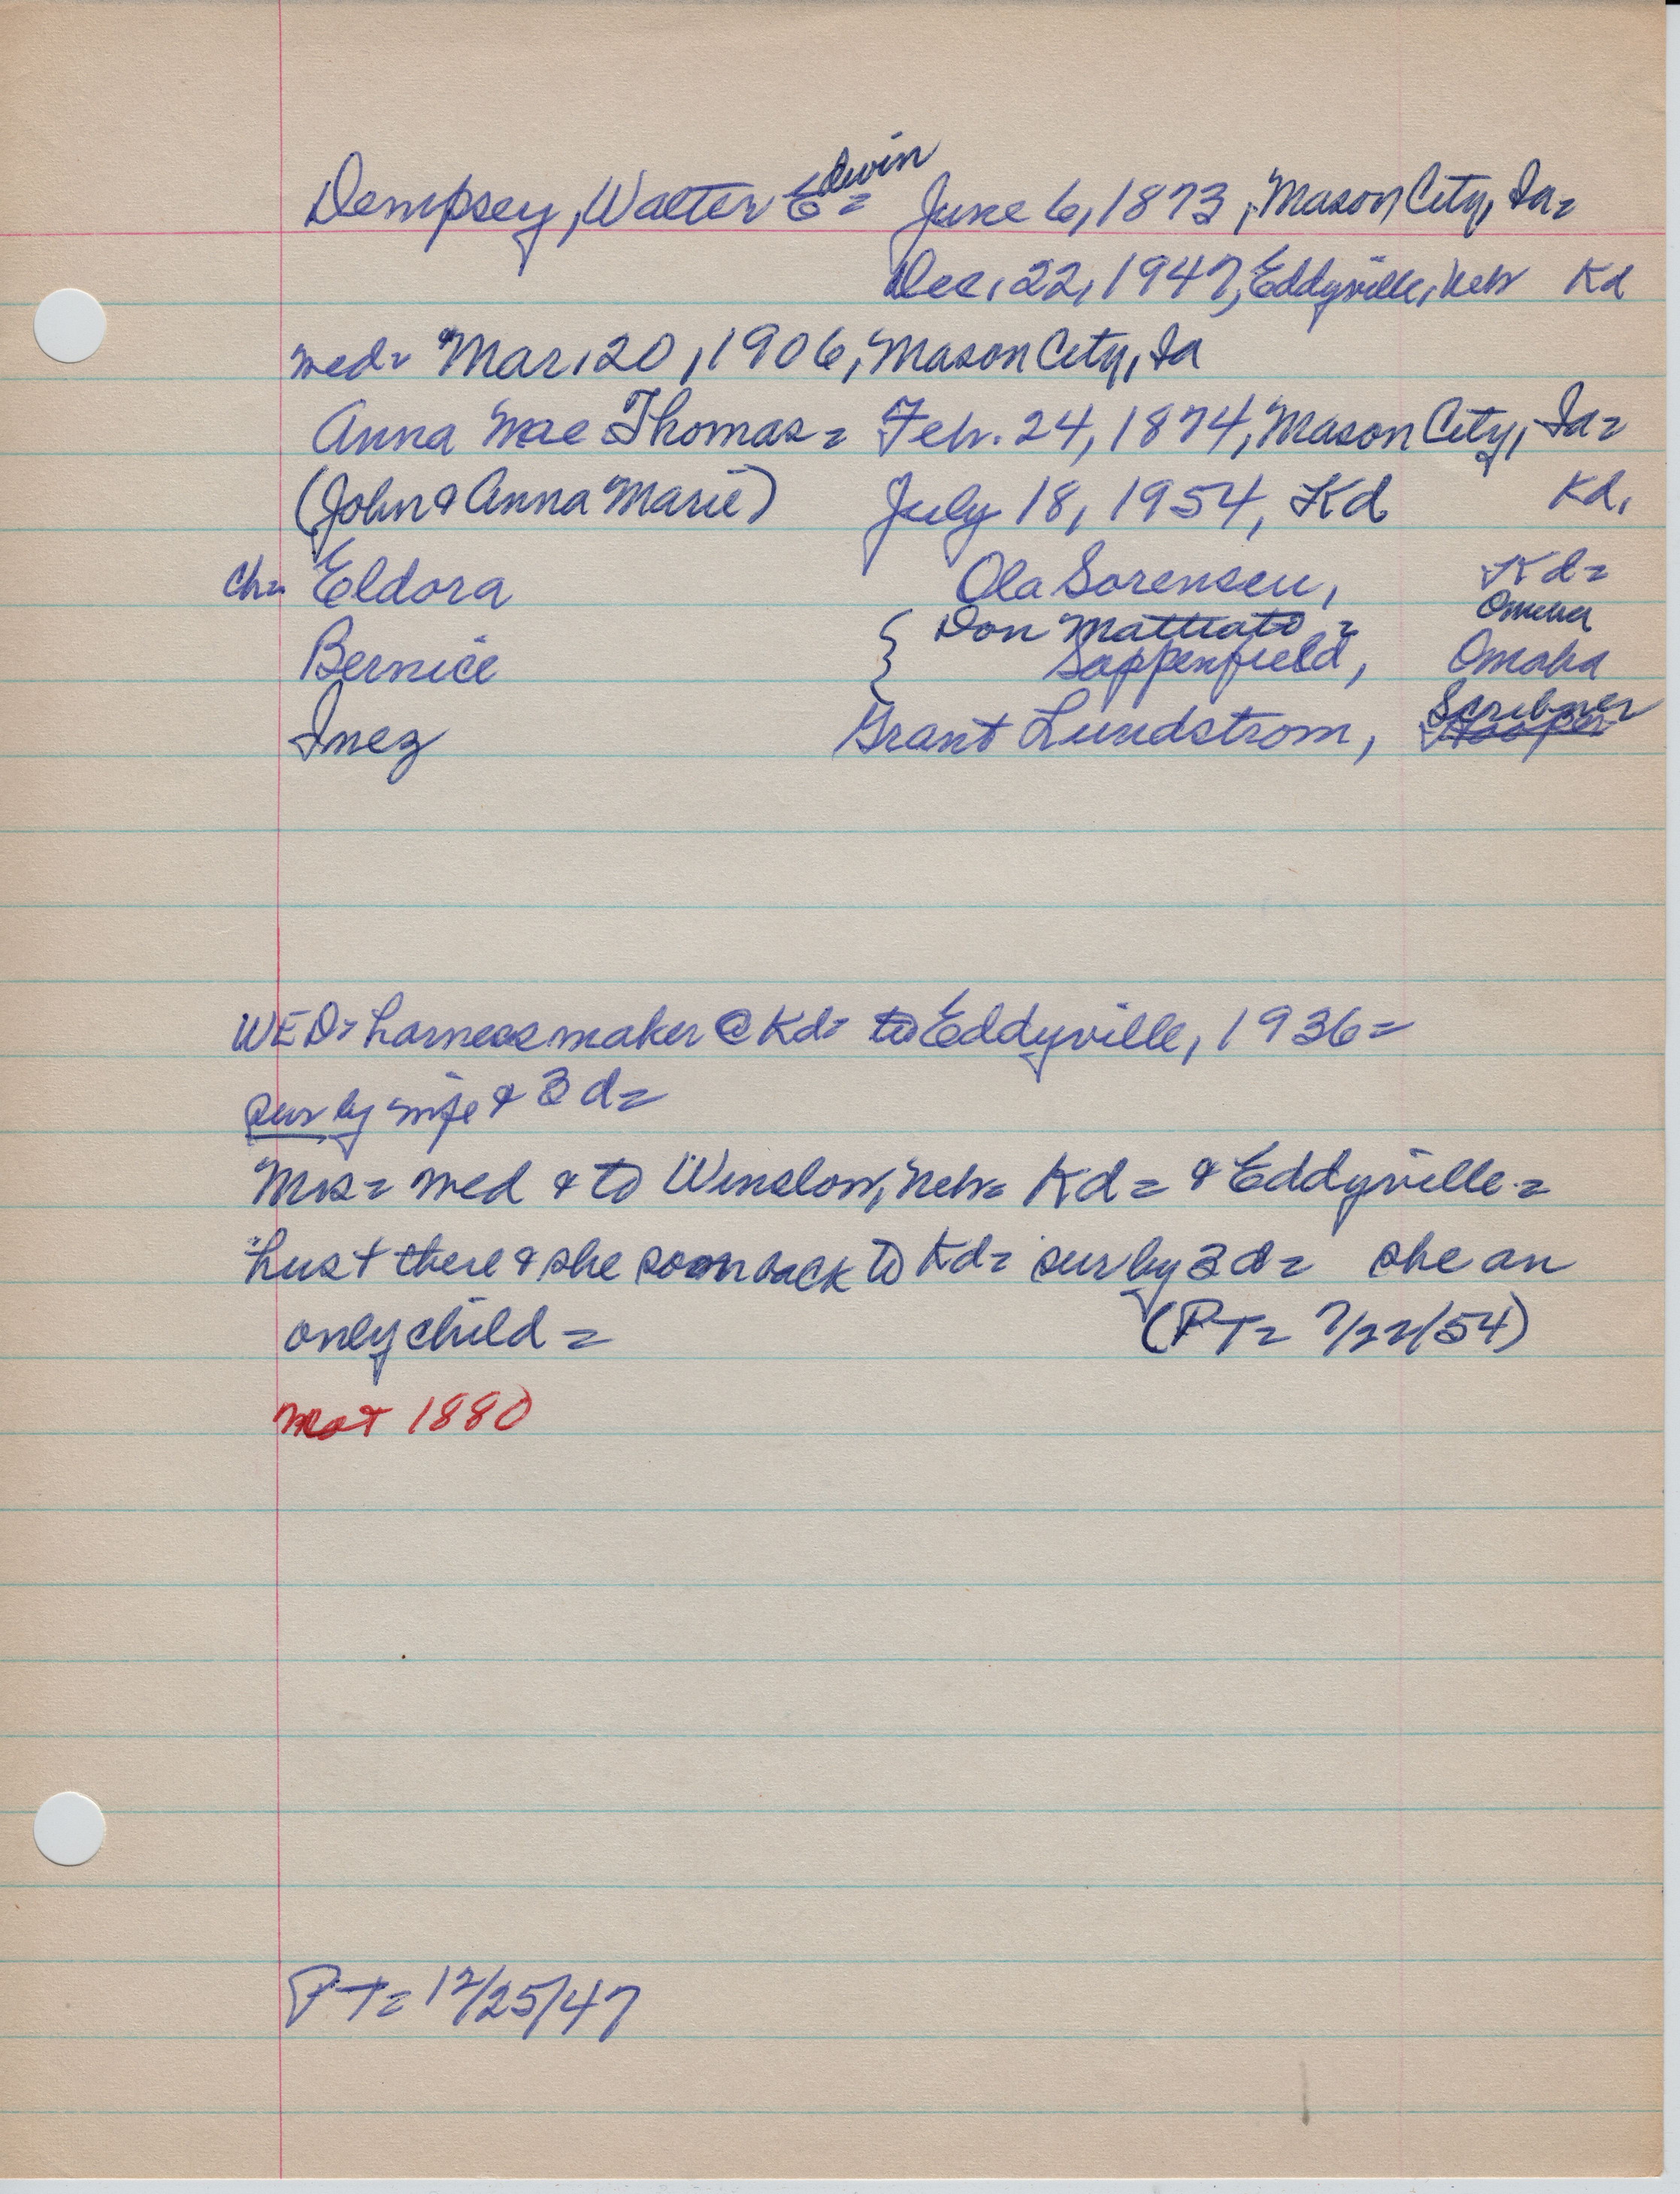 Dempsey, Walter Edwin = June 6, 1873, Mason City, Ia =
Dec. 22, 1947, Eddyville, Neb Kd
wed = Mar. 20, 1906, Mason City, Ia
Anna Mae Thomas = Feb. 24, 1874, Mason City, Ia =
(John & Anna Marie) July 18, 1954, Kd Kd.
ch = Eldora Ola Sorensen, Kd =
{ Don Mattiato = Omaha
Bernice Sappenfield, Omaha
Scribner
Inez Grant Lundstrom, Hooper
WED = harness maker @ Kd = to Eddyville, 1936 =
sur by wife & 3 d =
Mrs = wed & to Winslow, Neb = Kd = & Eddyville =
hus + there & she soon back to Kd = sur by 3 d = she an
only child = (PT = 7/22/54)
PT = 12/25/47